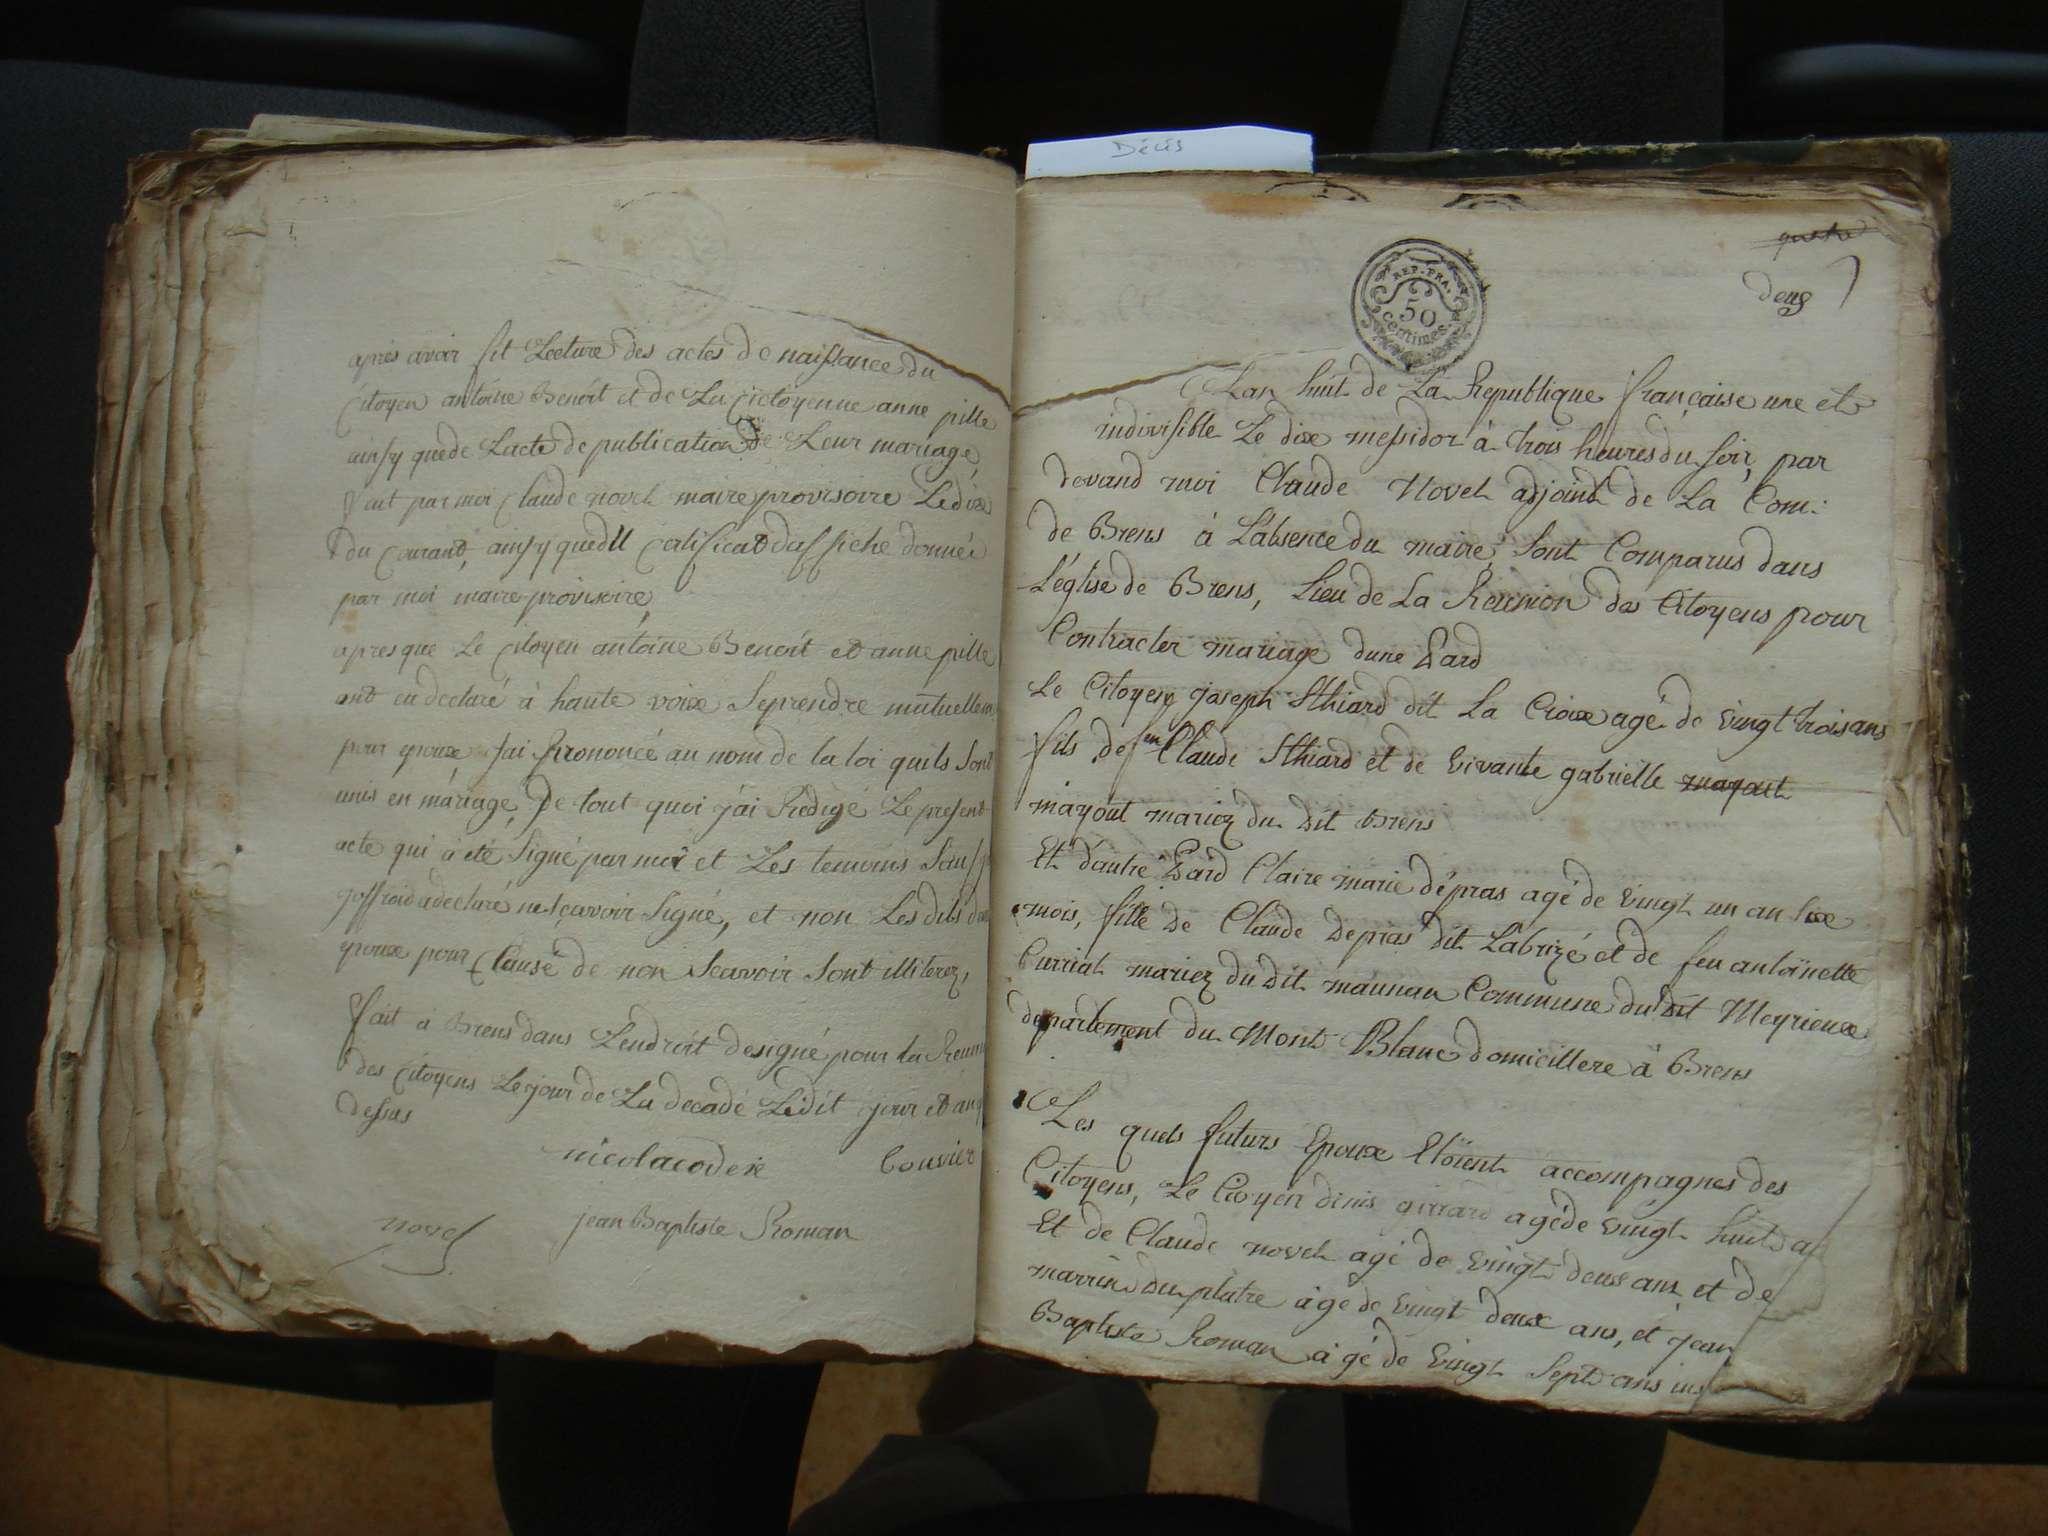 après avoir fit Lecture des actes de naissance du
Citoyen antoine Benoit et de La Citoyenne anne pille
ainsy que de Lacte de publication de Leur mariage
fait par moi Claude novel maire provisoire Le dix
du Courant, ainsy que du Certificat daffiche donnée
par moi maire provisoire,
apres que Le Citoyen antoine Benoit et anne pille
ont eu declaré à haute voix Se prendre mutuellem
pour epoux Jai Prononcé au nom de la loi quils Sont
unis en mariage, De tout quoi j'ai Redigé Le present
acte qui à eté Signé par moi et Les temoins Sauf
goffroid a declaré ne Scavoir Signé, et non Les dits
epoux pour Clause de non Scavoir Sont illiterez,
fait à Brens dans Lendroit designé pour la Reunion
des Citoyens Le jour de La decade Ledit jour et an
dessus
nicolacodexe bouvier
novel jean Baptiste Roman
Décès
REP. FRA.
50
centimes.
deux
Lan huit de La Republique française une et
indivisible Le dix messidor à trois heures du soir, par
devand moi Claude Novel adjoint de La Com:
de Brens à L'absence du maire, Sont Comparus dans
L'église de Brens, Lieu de La Reunion des Citoyens pour
Contracter mariage dune Pard
Le Citoyen joseph Sthiard dit La Croix agé de vingt trois ans
fils de feu Claude Sthiard et de vivante gabrielle mayout
mayout mariez du dit Brens
Et d'autre Pard Claire marie dépras agé de vingt un an six
mois, fille de Claude Depras dit Labrizé et de feu antoinette
Curriat mariez du dit maunan Commune du dit Meyrieux
departement du Mont Blanc domicillere à Brens
Les quels futurs Epoux Etoient accompagnes des
Citoyens, Le Citoyen denis girrard agé de vingt huit a
Et de Claude novel agé de vingt deux ans et de
marrin du platre àgé de vingt deux ans, et jean
Baptiste Roman àgé de vingt Sept ans